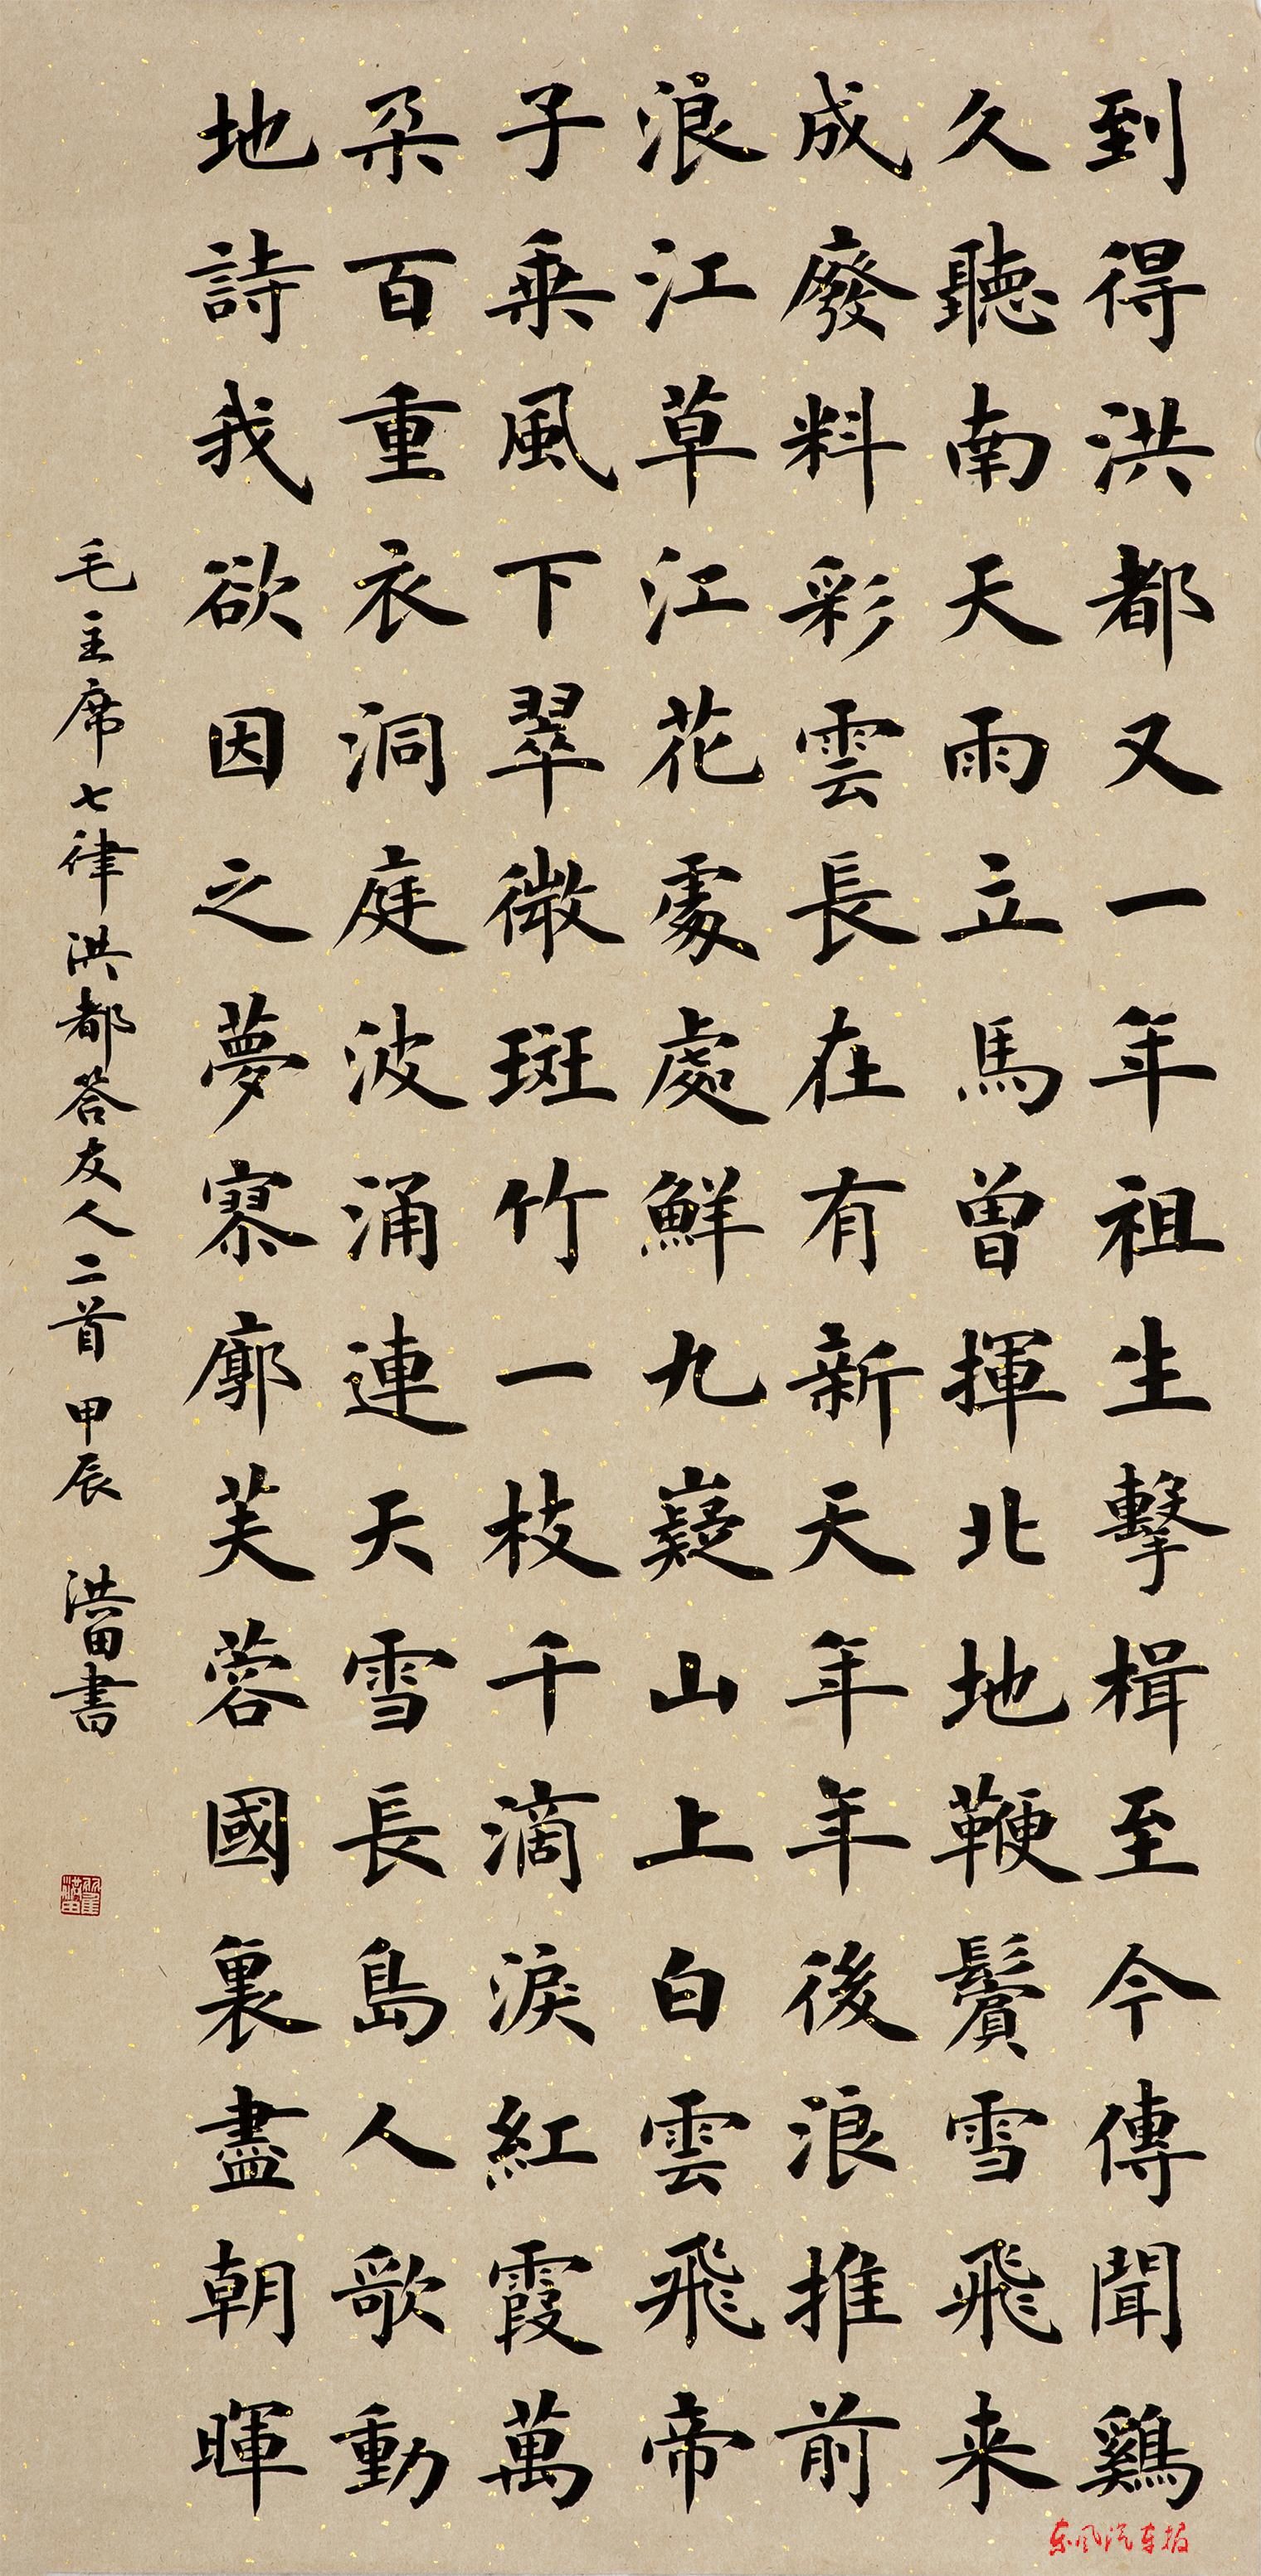 到得洪都又一年祖生擊楫至今傳聞鷄
久聽南天雨立馬曾揮北地鞭鬢雪飛来
成廢料彩雲長在有新天年年後浪推前
浪江草江花處處鮮九嶷山上白雲飛帝
子乗風下翠微斑竹一枝千滴淚紅霞萬
朵百重衣洞庭波涌連天雪長島人歌動
地詩我欲因之夢寥廓芙蓉國裏盡朝暉
毛主席七律洪都答友人二首 甲辰 洪田書
东风汽车报